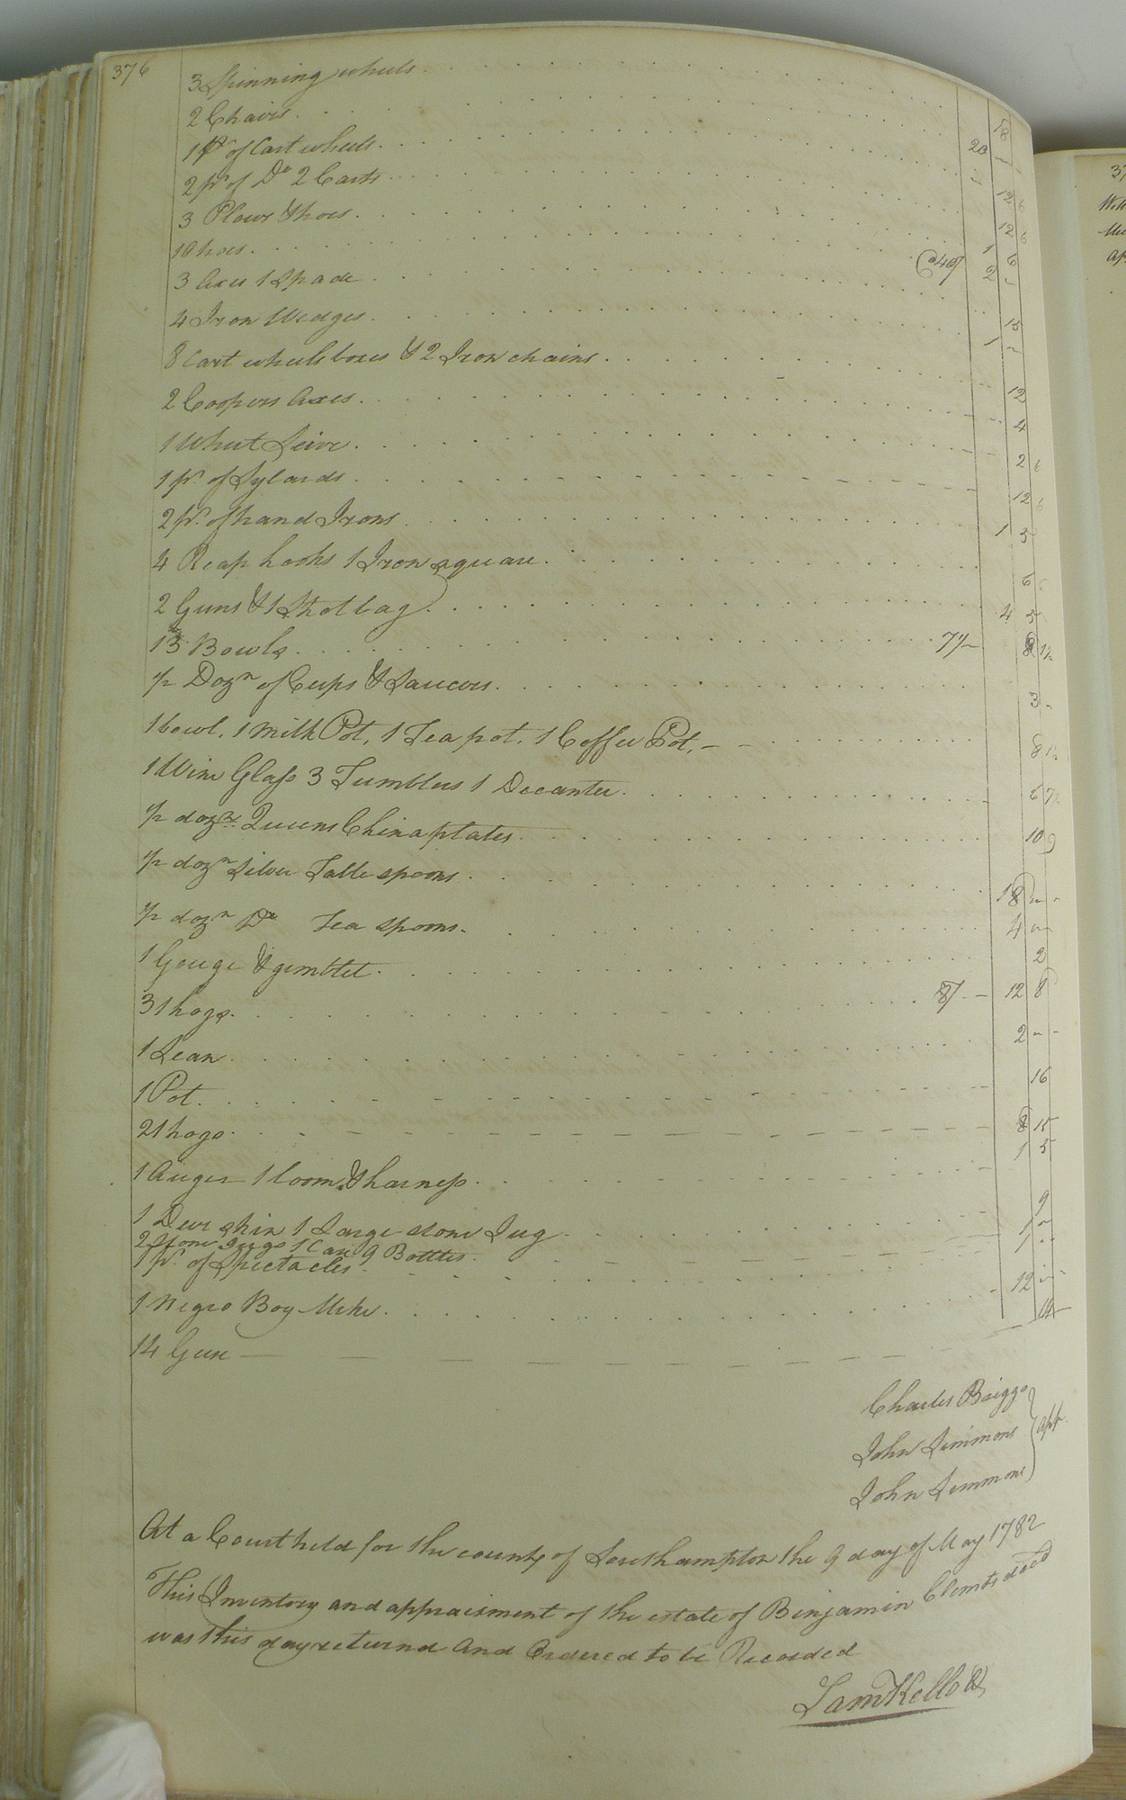 376
3 Spinning wheels
2 Chairs 18
1 pr of Cart wheels 20 –
2 pr of Do 2 Carts
3 Plows & hoes 12 6
10 hoes 12 6
3 axes 1 Spade @ 40/ 1 6
4 Iron Wedges 2 –
8 Cart wheel boxes & 2 Iron chains 15
2 Coopers Axes 1 –
1 Wheet Seive 12
1 pr of Sylards 4
2 pr of hand Irons 2 6
4 Reap hooks 1 Iron square 12 6
2 Guns & 1 Shot bag 1 5
13 Bowls 7/–
1/2 Dozn of Cups & Saucers
1 bowl, 1 Milk Pot, 1 Tea pot, 1 Coffee Pot, – – 3 –
1 Wine Glass 3 Tumblers 1 Decanter 8 1/2
1/2 dozn Queens China plates 6 7 1/2
1/2 dozn Silver Table spoons 10 9
1/2 dozn Do Tea spoons 18 – –
1 Gouge & gemblet 4 – –
31 hogs 8/– 12 8
1 Lean 2 – –
1 Pot 16
21 hogs 8 15
1 Auger 1 loom & harness 1 5
1 Deer skin 1 Large stone Jug 9
2 Stone Jugs 1 Case 9 Bottles 1 –
1 pr of Spectacles 1 –
1 Negro Boy Mike 12 – –
14 Geese 14 –
Charles Briggs
John Simmons appr
John Simmons
At a Court held for the county of Southampton the 9 day of May 1782
This Inventory and appraisment of the estate of Benjamin Clemts decd
was this day returnd And Ordered to be Recorded
Sam Kello Ck